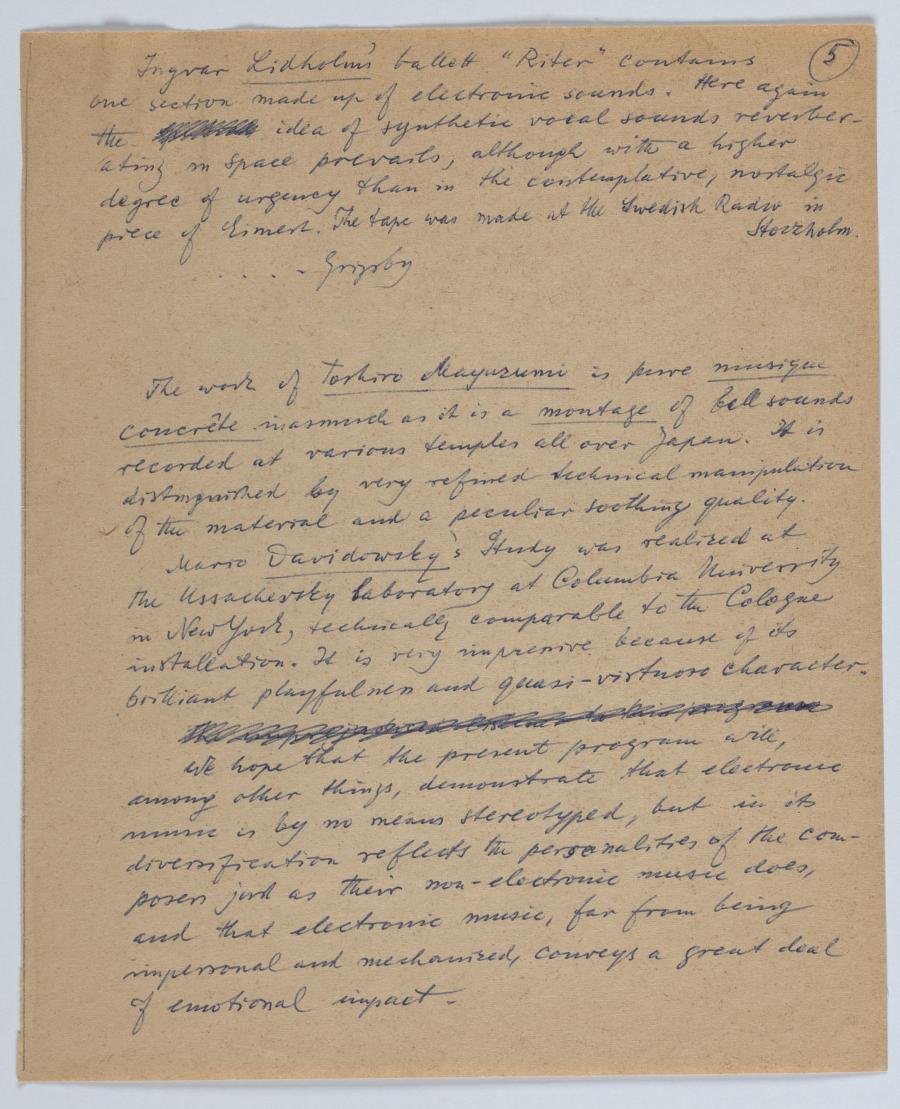 5
Ingvar Lidholm's ballett "Riter" contains
one section made up of electronic sounds. Here again
the idea of synthetic vocal sounds reverber-
ating in space prevails, although with a higher
degree of urgency than in the contemplative, nostalgic
piece of Eimert. The tape was made at the Swedish Radio in
Stockholm.
. . . . Grigsby
The work of Toshiro Mayuzumi is pure musique
concrête inasmuch as it is a montage of bell sounds
recorded at various temples all over Japan. It is
distinguished by very refined technical manipulation
of the material and a peculiar soothing quality.
Mario Davidowsky's Study was realized at
the Ussachevsky laboratory at Columbia University
in New York, technically comparable to the Cologne
installation. It is very impressive because of its
brilliant playfulness and quasi-virtuoso character.
We hope that the present program will,
among other things, demonstrate that electronic
music is by no means stereotyped, but in its
diversification reflects the personalities of the com-
posers just as their non-electronic music does,
and that electronic music, far from being
impersonal and mechanized, conveys a great deal
of emotional impact.